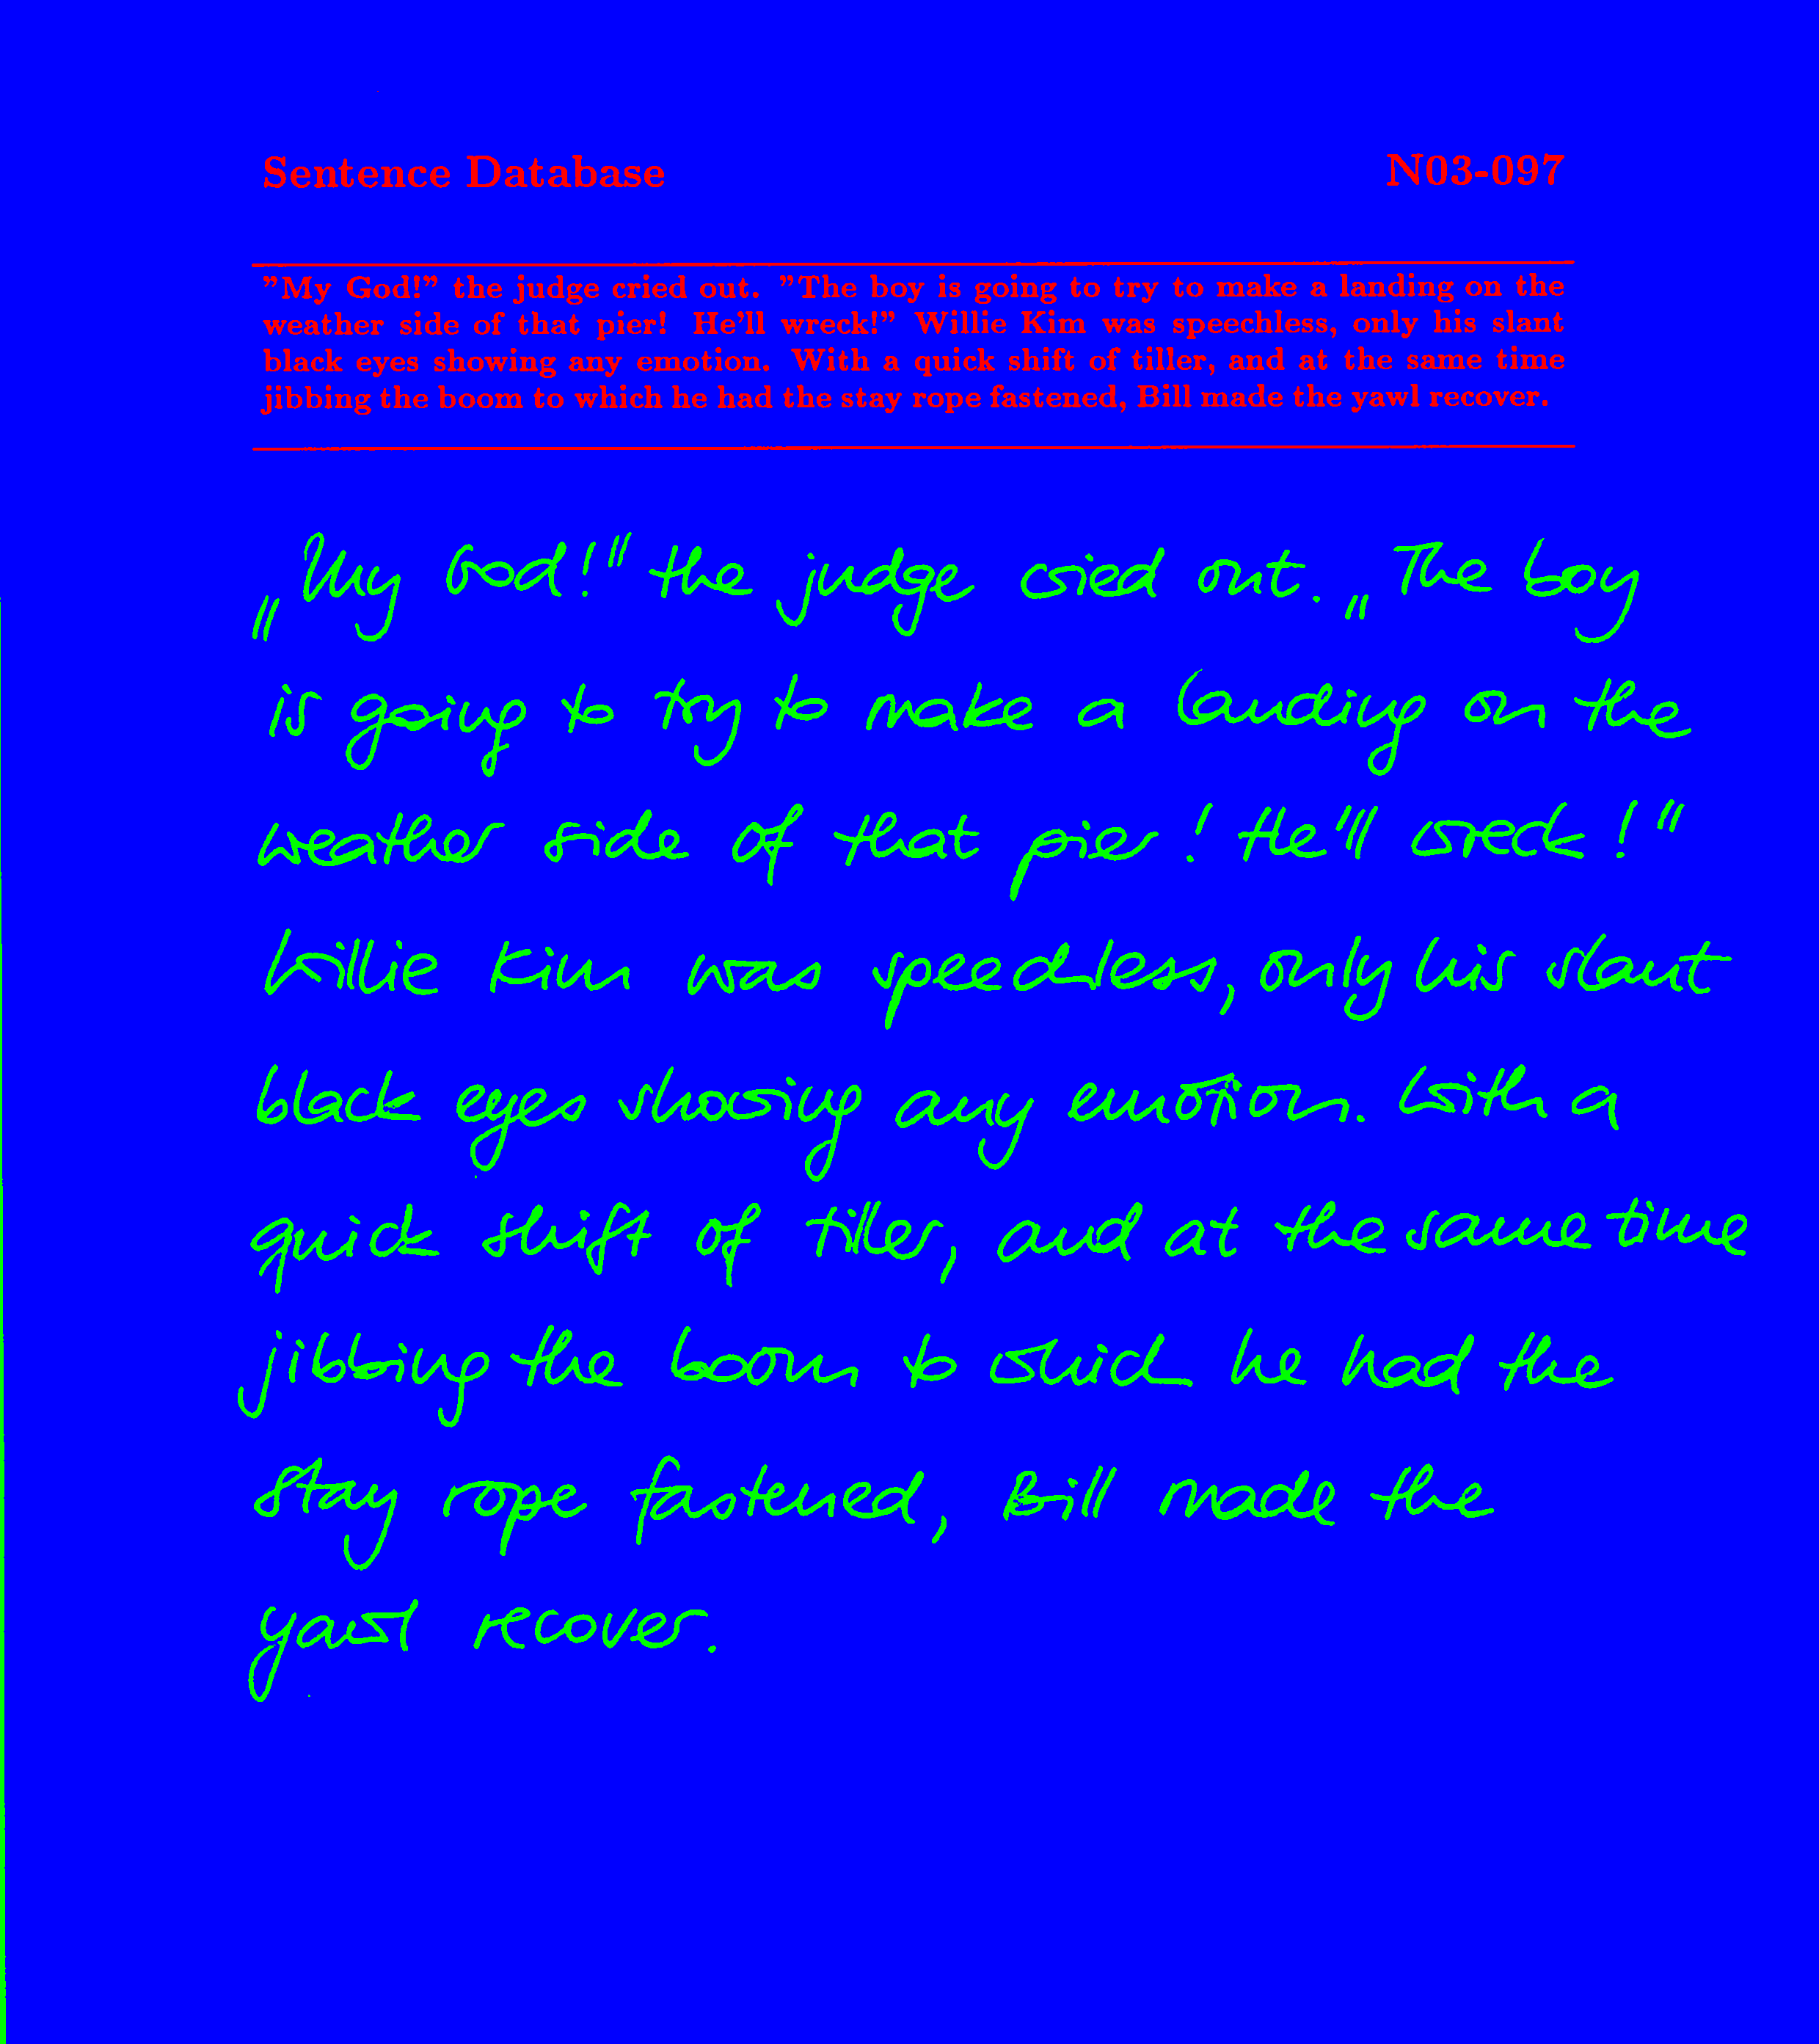 Sentence Database N03-097
"My God!" the judge cried out. "The boy is going to try to make a landing on the
weather side of that pier! He'll wreck!" Willie Kim was speechless, only his slant
black eyes showing any emotion. With a quick shift of tiller, and at the same time
jibbing the boom to which he had the stay rope fastened, Bill made the yawl recover.
„My God!" the judge cried out. „The boy
is going to try to make a landing on the
weather side of that pier! He'll wreck!"
Willie Kim was speechless, only his slant
black eyes showing any emotion. With a
quick shift of tiller, and at the same time
jibbing the boom to which he had the
stay rope fastened, Bill made the
yawl recover.